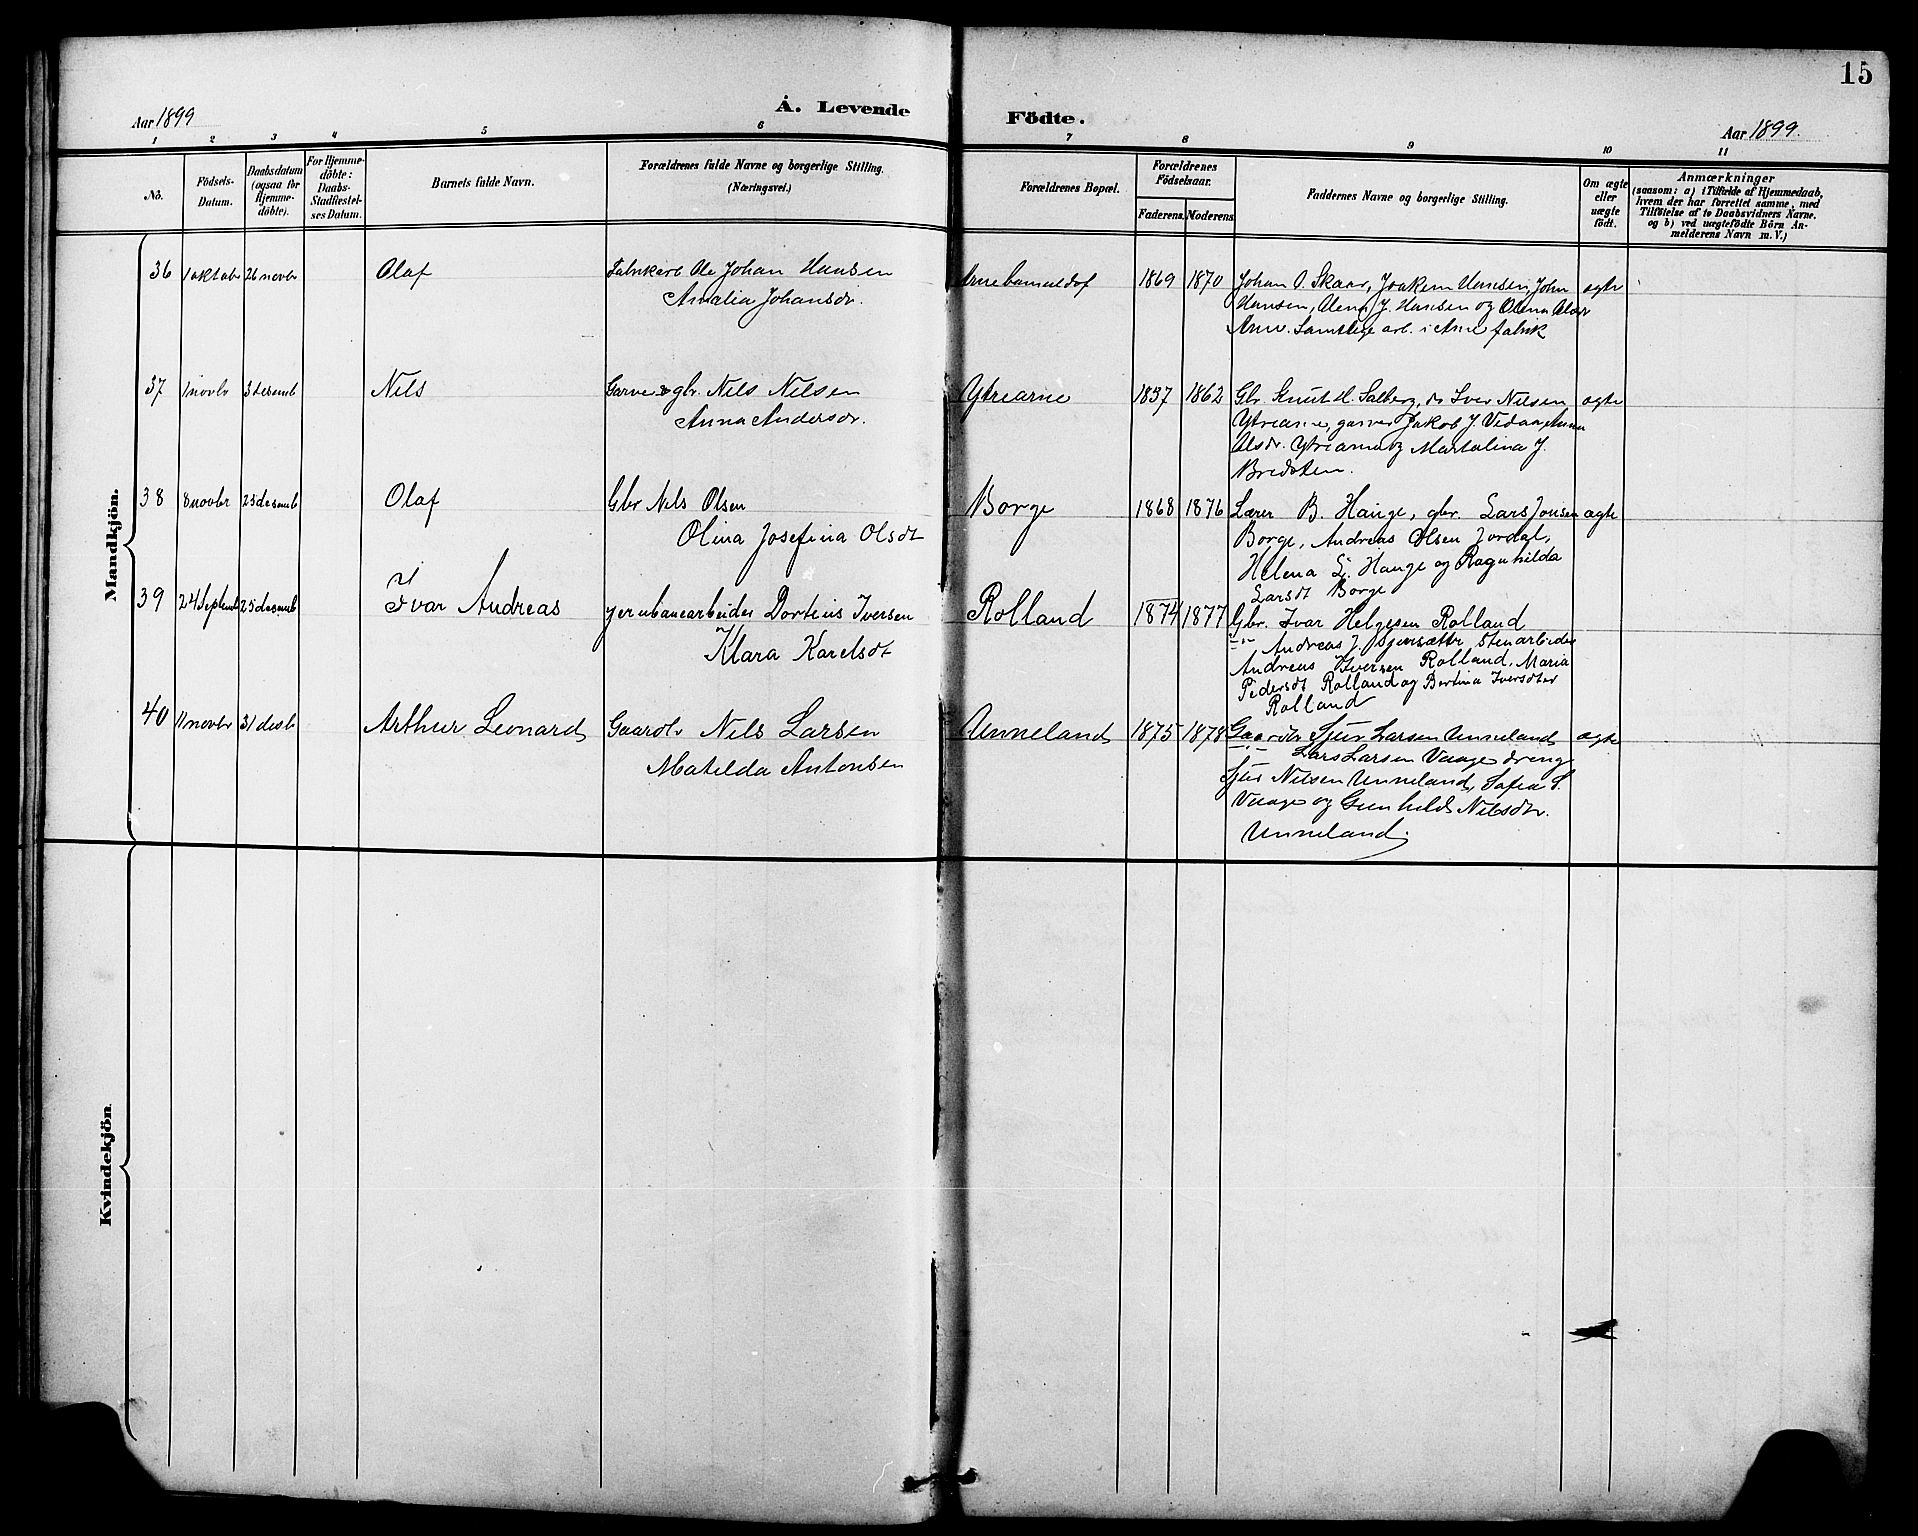 15
Aar 1899
A. Levende Födte.
Aar 1899.
1 2 3 4 5 6 7 8 9 10 11
No.
Födsels-Datum.
Daabsdatum (ogsaa for Hjemme-döbte).
For Hjemme-döbte: Daabs-Stadfæstel-ses Datum.
Barnets fulde Navn.
Forældrenes fulde Navne og borgerlige Stilling.
(Næringsvei.)
Forældrenes Bopæl.
Forældrenes Födselsaar.
Faderens. Moderens.
Faddernes Navne og borgerlige Stilling.
Om ægte eller uægte födt.
Anmærkninger
(saasom: a) i Tilfælde af Hjemmedaab,
hvem der har forrettet samme, med
Tilföielse af to Daabsvidners Navne.
og b) ved uægtefödte Börn An-
melderens Navn m. V.)
Mandkjön.
36 1 oktobr 26 novbr Olaf Fabrikarb Ole Johan Hansen 1869 1870 Johan O. Skaar, Joakim Hansen, John ægte
Amalia Johansdr. Hansen, J. Hansen og Olena Olsdr
Arne. Samtlige arb. i Arne fabrik
37 1 novbr 3 desemb Nils Garver & gbr. Nils Nilsen Ytrearne 1857 1862 Gbr. Knut H. Salberg, do Iver Nilsen ægte
Anna Andersdr. Ytrearne, garver Jakob J. Vedaa, Anna
Olsdr. Ytrearne og Martalina J.
Bredsten.
38 8 novbr 25 desemb Olaf Gbr Nils Olsen Borge 1868 1876 Lærer B. Hauge, gbr. Lars Jonsen ægte
Olina Josefina Olsdt Borge, Andreas Olsen Jordal,
Helena L. Hauge og Ragnhilda
Larsdt Borge
39 24 Septemb 25 desemb Ivar Andreas jernbanearbeider Dortius Iversen Rolland 1874 1877 Gbr. Ivar Helgesen Rolland
Klara Karelsdt Andreas J. Stenarbeider
Andreas Iversen Rolland, Maria
Pedersdt Rolland og Bertina Iversdtr
Rolland
40 11 novbr 31 desb Arthur Leonard Gaardbr Nils Larsen Unneland 1875 1878 Gaardbr Sjur Larsen Unneland ægte
Matilda Antonsen Lars Larsen Vaage dreng
Sjur Nilsen Unneland, Sofia S.
Vaage og Gunhild Nilsdtr.
Unneland.
Kvindekjön.